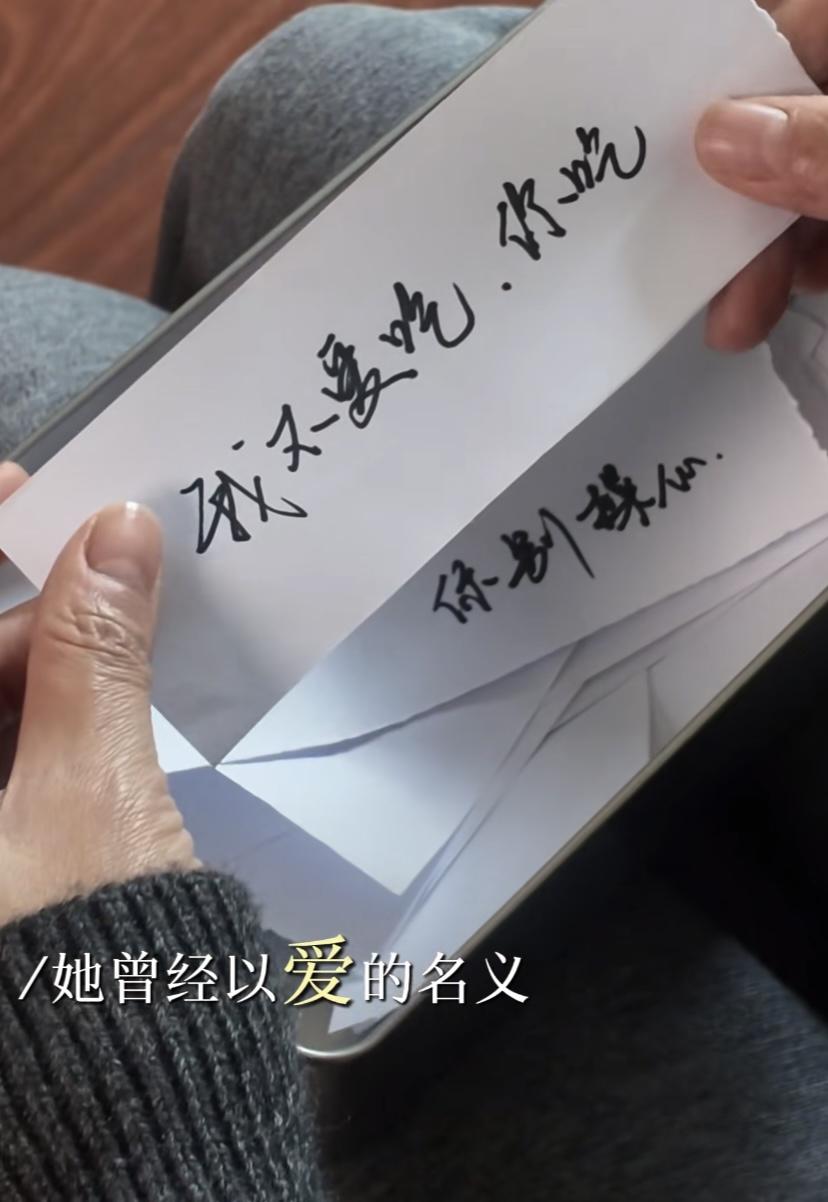 我不要吃.你吃
你别操心.
/她曾经以爱的名义